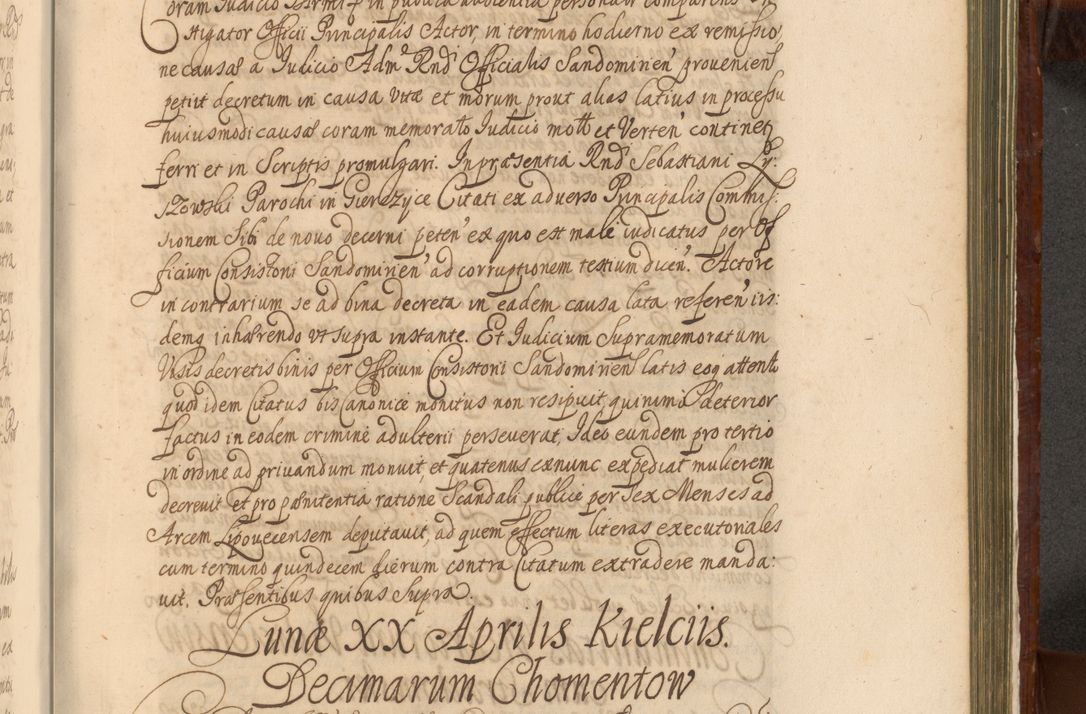 coram Judicio
stigator Officii Principalis Actor, in termino hodierno ex remissio
ne causæ a Judicio Adm. Rnd Officialis Sandomirien' provenien
petiit decretum in causa vitæ et morum prout alias latius in processu
huiusmodi causæ coram memorato Judicio mott et Verten' continet
ferri et in Scriptis promulgari. In præsentia Rnd Sebastiani Ly:
szowski Parochi in Gierczyce Citati ex adverso Principalis Commis:
sionem Sibi de novo decerni peten' ex quo est male iudicatus per Of
ficium Consistorii Sandomirien' ad corruptionem testium dicen'. Actore
in contrarium se ad bina decreta in eadem causa lata referen' iis:
demq inhærendo ut supra instante. Et Judicium Supramemoratum
Visis decretis binis per Officium Consistorii Sandomirien latis eoq attento
quod idem Citatus bis Canonice monitus non resipuit quinimo deterior
factus in eodem crimine adulterii perseverat, Ideo eundem pro tertio
in ordine ad privandum monuit, et quatenus exnunc expediat mulierem
decrevit et pro pænitentia ratione Scandali publice per sex Menses ad
Arcem Lipovecensem deputavit, ad quem effectum literas executoriales
cum termino quindecem dierum contra Citatum extradere manda:
vit. Præsentibus quibus Supra.
Lunæ XX Aprilis Kielciis.
Decimarum Chomentow